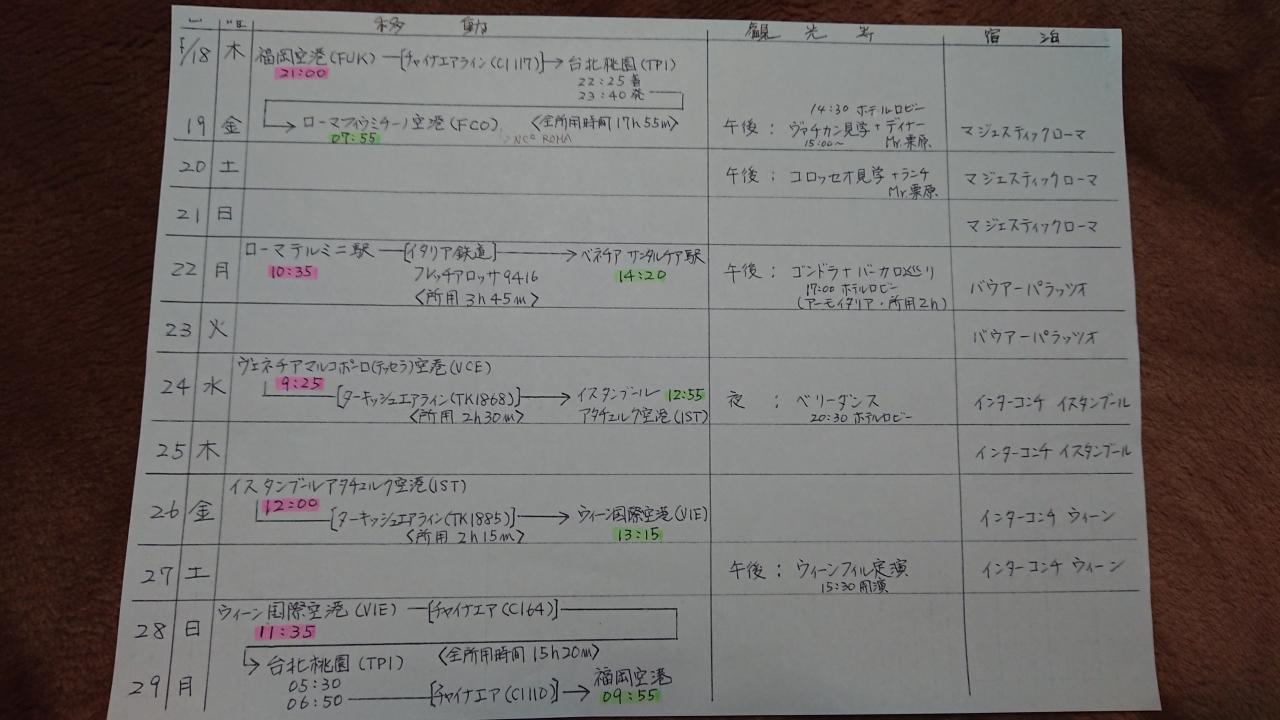 移動 観光等 宿泊
/18 木 福岡空港(FUK) —[チャイナエアライン(CI117)]→ 台北桃園(TPI)
21:00 22:25着
23:40発
19 金 → ローマフィウミチーノ空港(FCO) 〈全所用時間17h55m〉
07:55
14:30 ホテルロビー
午後: ヴァチカン見学+ディナー
15:00~ Mr.栗原
マジェスティックローマ
20 土 午後: コロッセオ見学+ランチ マジェスティックローマ
Mr.栗原
21 日 マジェスティックローマ
22 月 ローマテルミニ駅 —[イタリア鉄道]→ ベネチア サンタルチア駅
10:35 フレッチアロッサ9416 14:20
〈所用3h45m〉
午後: ゴンドラ+バーカロ巡り
17:00 ホテルロビー
(アーモイタリア・所用2h)
バウアーパラッツオ
23 火 バウアーパラッツオ
24 水 ヴェネチアマルコポーロ(テッセラ)空港(VCE)
9:25
[ターキッシュエアライン(TK1868)]→ イスタンブール 12:55
〈所用2h30m〉 アタチュルク空港(IST)
夜: ベリーダンス
20:30 ホテルロビー
インターコンチ イスタンブール
25 木 インターコンチ イスタンブール
26 金 イスタンブールアタチュルク空港(IST)
12:00
[ターキッシュエアライン(TK1885)]→ ウィーン国際空港(VIE)
〈所用2h15m〉 13:15
インターコンチ ウィーン
27 土 午後: ウィーンフィル定演 インターコンチ ウィーン
15:30開演
28 日 ウィーン国際空港(VIE) —[チャイナエア(CI64)]
11:35
→ 台北桃園(TPI) 〈全所用時間15h20m〉
29 月 05:30
06:50 —[チャイナエア(CI110)]→ 福岡空港
09:55